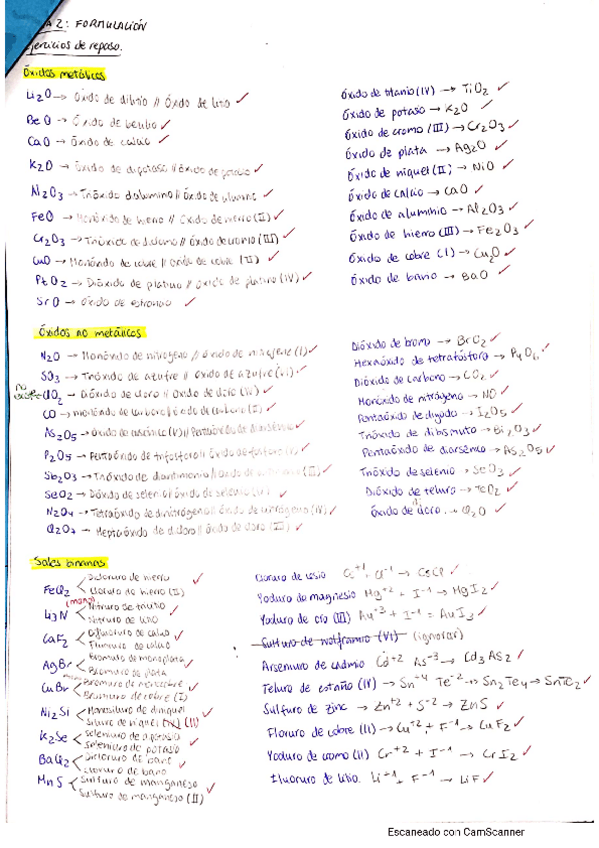 A 2: FORMULACIÓN
Ejercicios de repaso.
Óxidos metálicos
Li2O → Óxido de dilitio // Óxido de litio ✓
BeO → Óxido de berilio ✓
CaO → Óxido de calcio ✓
K2O → Óxido de dipotasio // Óxido de potasio ✓
Al2O3 → Trióxido dialuminio // Óxido de aluminio ✓
FeO → Monóxido de hierro // Óxido de hierro (II) ✓
Cr2O3 → Trióxido de dicromo // Óxido de cromo (III) ✓
CuO → Monóxido de cobre // Óxido de cobre (II) ✓
PtO2 → Dióxido de platino // óxido de platino (IV) ✓
SrO → óxido de estroncio ✓
Óxido de titanio (IV) → TiO2 ✓
Óxido de potasio → K2O ✓
Óxido de cromo (III) → Cr2O3 ✓
Óxido de plata → Ag2O ✓
Óxido de níquel (II) → NiO ✓
Óxido de calcio → CaO ✓
Óxido de aluminio → Al2O3 ✓
Óxido de hierro (III) → Fe2O3 ✓
Óxido de cobre (I) → Cu2O ✓
Óxido de bario → BaO ✓
Óxidos no metálicos
N2O → Monóxido de nitrógeno // óxido de nitrógeno (I) ✓
SO3 → Trióxido de azufre // óxido de azufre (VI) ✓
no existe ClO2 → Dióxido de cloro // Óxido de cloro (IV) ✓
CO → monóxido de carbono // óxido de carbono (II) ✓
As2O5 → óxido de arsénico (V) // Pentaóxido de diarsénico ✓
P2O5 → Pentaóxido de trifósforo // Óxido de fósforo (V) ✓
Sb2O3 → Trióxido de diantimonio // óxido de (III) ✓
SeO2 → Dióxido de selenio // óxido de selenio (IV) ✓
N2O4 → Tetraóxido de dinitrógeno // óxido de nitrógeno (IV) ✓
Cl2O7 → Heptaóxido de dicloro // óxido de cloro ✓
Dióxido de bromo → BrO2 ✓
Hexaóxido de tetrafósforo → P4O6 ✓
Dióxido de carbono → CO2 ✓
Monóxido de nitrógeno → NO ✓
Pentaóxido de diyodo → I2O5 ✓
Trióxido de dibismuto → Bi2O3 ✓
Pentaóxido de diarsénico → As2O5 ✓
Trióxido de selenio → SeO3 ✓
Dióxido de teluro → TeO2 ✓
Óxido de cloro → Cl2O ✓
Sales binarias
FeCl2 Dicloruro de hierro ✓
Cloruro de hierro (II)
Li3N (mono) Nitruro de trilitio ✓
Nitruro de litio
CaF2 Difluoruro de calcio ✓
Fluoruro de calcio
AgBr Bromuro de monoplata ✓
Bromuro de plata
CuBr Bromuro de monocobre ✓
Bromuro de cobre (I)
Ni2Si Monosiliciuro de diníquel ✓
Siliciuro de níquel (II)
K2Se seleniuro de potasio ✓
Seleniuro de potasio
BaCl2 Dicloruro de bario ✓
Cloruro de bario
MnS Sulfuro de manganeso ✓
Sulfuro de manganeso (II)
Cloruro de cesio Cs+1 Cl-1 → CsCl ✓
Yoduro de magnesio Mg+2 + I-1 → MgI2 ✓
Yoduro de oro (III) Au+3 + I-1 = AuI3 ✓
Sulfuro de wolframio (VI) (ignorar)
Arseniuro de cadmio Cd+2 As-3 → Cd3As2 ✓
Telururo de estaño (IV) → Sn+4 Te-2 → Sn2Te4 → SnTe2 ✓
Sulfuro de zinc → Zn+2 + S-2 → ZnS ✓
Floruro de cobre (II) → Cu+2 + F-1 → CuF2 ✓
Yoduro de cromo (II) Cr+2 + I-1 → CrI2 ✓
Fluoruro de litio. Li+1 + F-1 → LiF ✓
Escaneado con CamScanner